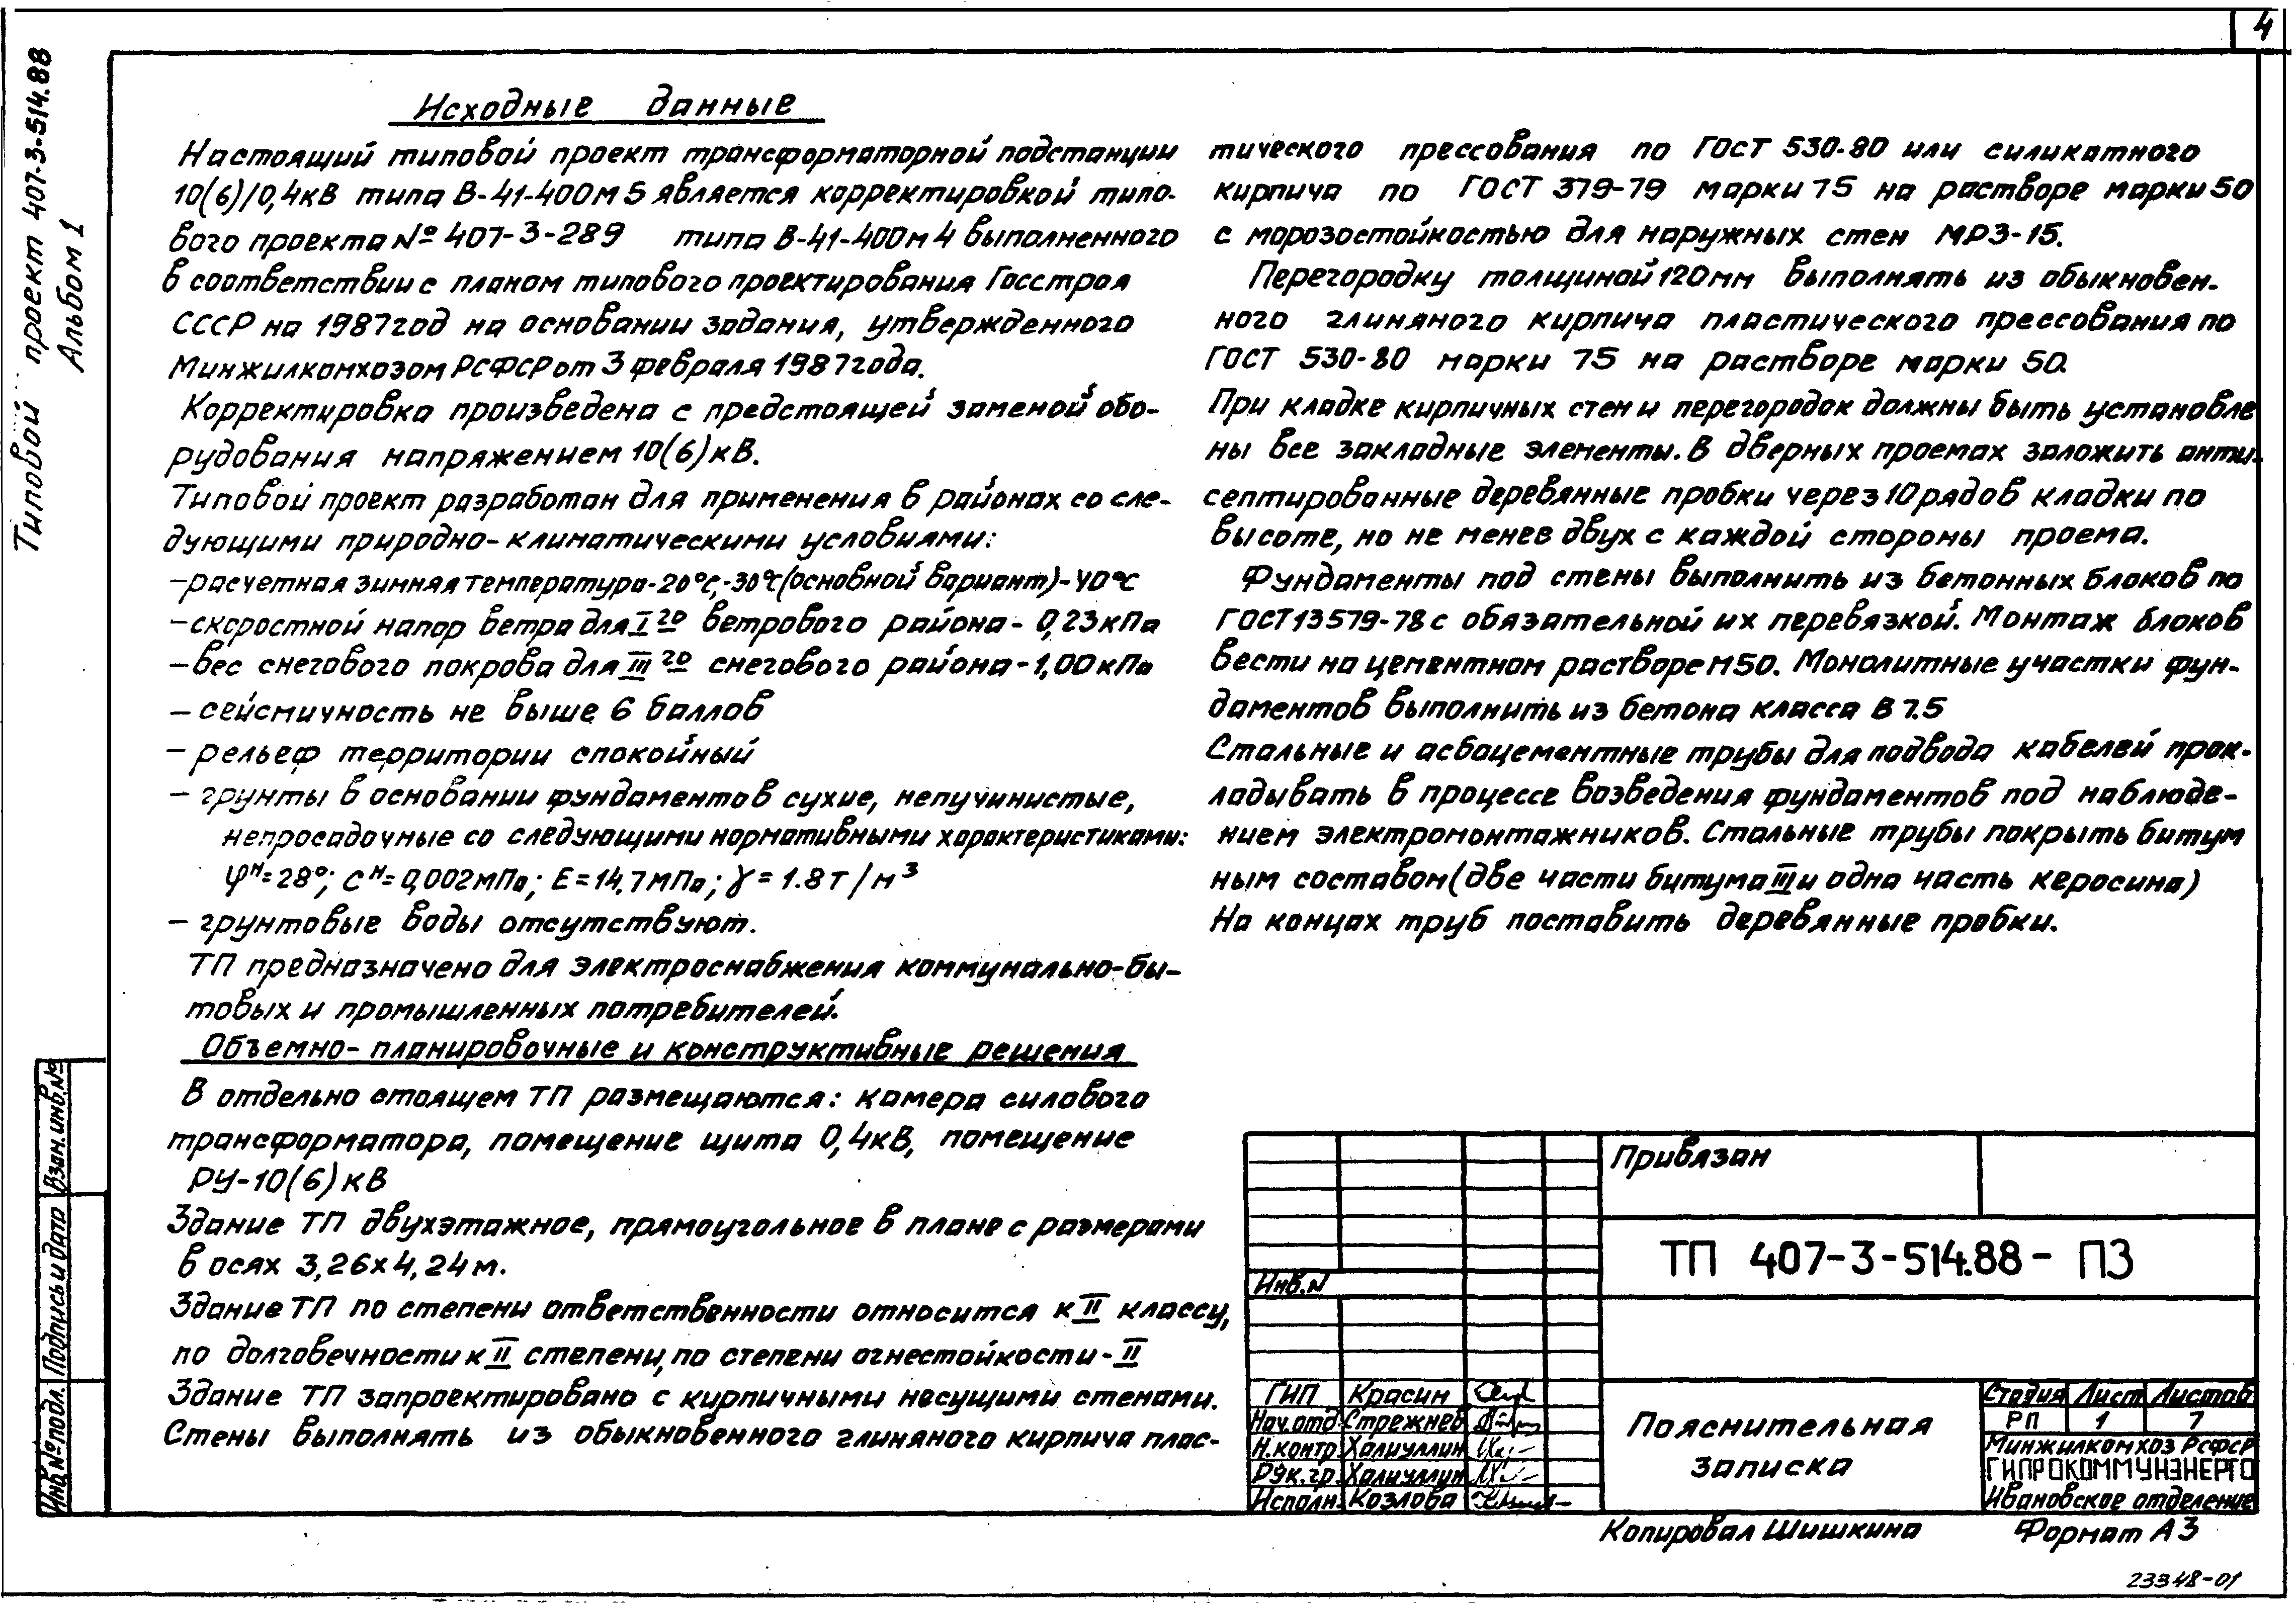 4
Типовой проект 407-3-514.88
Альбом 1
Исходные данные
Настоящий типовой проект трансформаторной подстанции
10(6)/0,4кВ типа В-41-400м5 является корректировкой типо-
вого проекта № 407-3-289 типа В-41-400м4 выполненного
в соответствии с планом типового проектирования Госстроя
СССР на 1987год на основании задания, утвержденного
Минжилкомхозом РСФСР от 3 февраля 1987года.
Корректировка произведена с предстоящей заменой обо-
рудования напряжением 10(6)кВ.
Типовой проект разработан для применения в районах со сле-
дующими природно-климатическими условиями:
-расчетная зимняя температура-20°С;-30°С(основной вариант)-40°С
-скоростной напор ветра для I го ветрового района - 0,23кПа
-вес снегового покрова для III го снегового района - 1,00кПа
- сейсмичность не выше 6 баллов
- рельеф территории спокойный
- грунты в основании фундаментов сухие, непучинистые,
непросадочные со следующими нормативными характеристиками:
φᴴ=28°; Сᴴ=0,002мПа; Е=14,7мПа; γ=1.8т/м³
- грунтовые воды отсутствуют.
ТП предназначено для электроснабжения коммунально-бы-
товых и промышленных потребителей.
Объемно-планировочные и конструктивные решения
В отдельно стоящем ТП размещаются: камера силового
трансформатора, помещение щита 0,4кВ, помещение
РУ-10(6)кВ
Здание ТП двухэтажное, прямоугольное в плане с размерами
в осях 3,26х4,24м.
Здание ТП по степени ответственности относится к II классу,
по долговечности к II степени, по степени огнестойкости-II
Здание ТП запроектировано с кирпичными несущими стенами.
Стены выполнять из обыкновенного глиняного кирпича плас-
тического прессования по ГОСТ 530-80 или силикатного
кирпича по ГОСТ 379-79 марки 75 на растворе марки 50
с морозостойкостью для наружных стен МРЗ-15.
Перегородку толщиной 120мм выполнять из обыкновен-
ного глиняного кирпича пластического прессования по
ГОСТ 530-80 марки 75 на растворе марки 50.
При кладке кирпичных стен и перегородок должны быть установле
ны все закладные элементы. В дверных проемах заложить анти-
септированные деревянные пробки через 10 рядов кладки по
высоте, но не менее двух с каждой стороны проема.
Фундаменты под стены выполнить из бетонных блоков по
ГОСТ 13579-78 с обязательной их перевязкой. Монтаж блоков
вести на цементном растворе М50. Монолитные участки фун-
даментов выполнить из бетона класса В 7.5
Стальные и асбоцементные трубы для подвода кабелей прок-
ладывать в процессе возведения фундаментов под наблюде-
нием электромонтажников. Стальные трубы покрыть битум
ным составом (две части битума III и одна часть керосина)
На концах труб поставить деревянные пробки.
Взам.инв.№
Подпись и дата
Инв.№подл.
Привязан
Инв.N
ТП 407-3-514.88 - ПЗ
ГИП Красин
Нач.отд. Стрежнев
Н.контр. Халиуллин
Рук.гр. Халиуллин
Исполн. Козлова
Пояснительная
записка
Стадия Лист Листов
РП 1 7
Минжилкомхоз РСФСР
ГИПРОКОММУНЭНЕРГО
Ивановское отделение
Копировал Шишкина Формат А3
23348-01